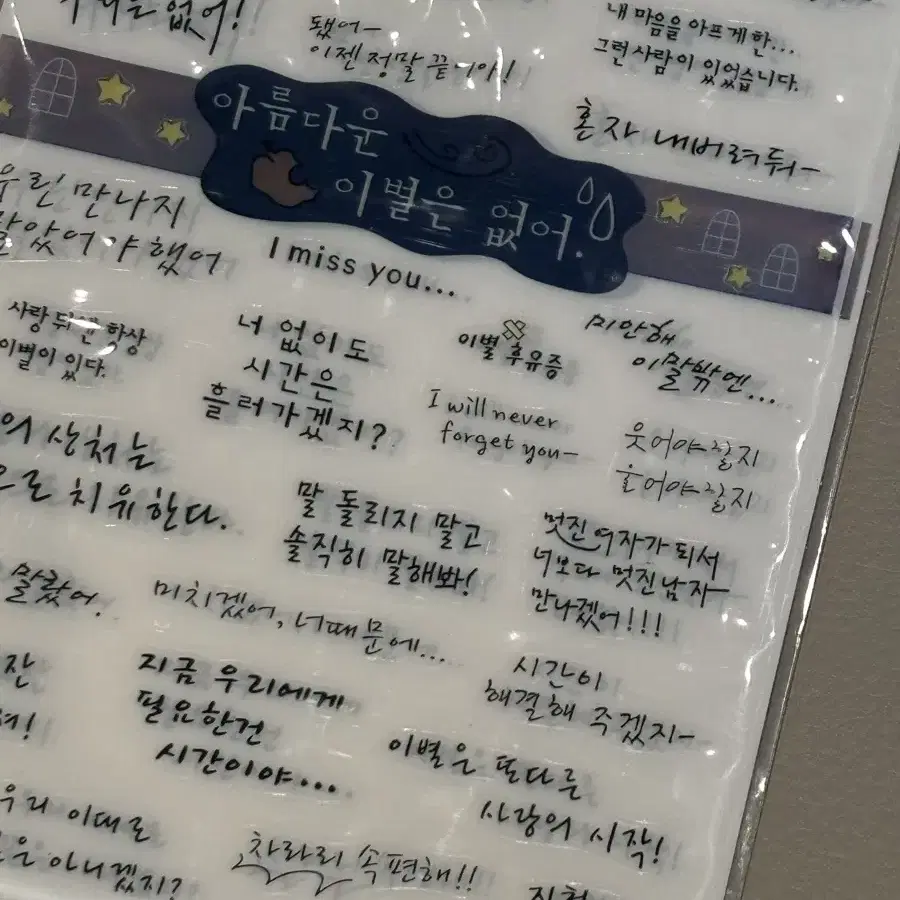 없어!
됐어~
이젠 정말 끝이야!
내 마음을 아프게 한...
그런 사람이 있었습니다.
혼자 내버려둬~
아름다운
이별은 없어.
우린 만나지
말았어야 했어
I miss you...
사랑 뒤엔 항상
이별이 있다.
너 없이도
시간은
흘러가겠지?
이별 후유증
미안해
이 말밖엔...
I will never
forget you~
웃어야 할지
울어야 할지
상처는
으로 치유한다.
말 돌리지 말고
솔직히 말해봐!
멋진 여자가 되서
너보다 멋진 남자
만나겠어!!!
말랐어.
미치겠어, 너 때문에...
시간이
해결해 주겠지~
잔
지금 우리에게
필요한건
시간이야...
이별은 또다른
사랑의 시작!
우리 이대로
아니겠지?
차라리 속 편해!!